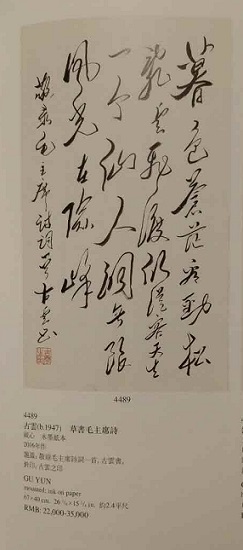 暮色蒼茫看勁松
亂雲飛渡仍從容天生
一个仙人洞無限
風光在險峰
敬录毛主席詩詞一首 古雲書
4489
4489
古雲(b.1947) 草書毛主席詩
鏡心 水墨紙本
年作
題識：敬錄毛主席詩詞一首，古雲書。
鈐印：古雲之印
GU YUN
mounted; ink on paper
67×40 cm. 約2.4平尺
RMB: 22,000-35,000